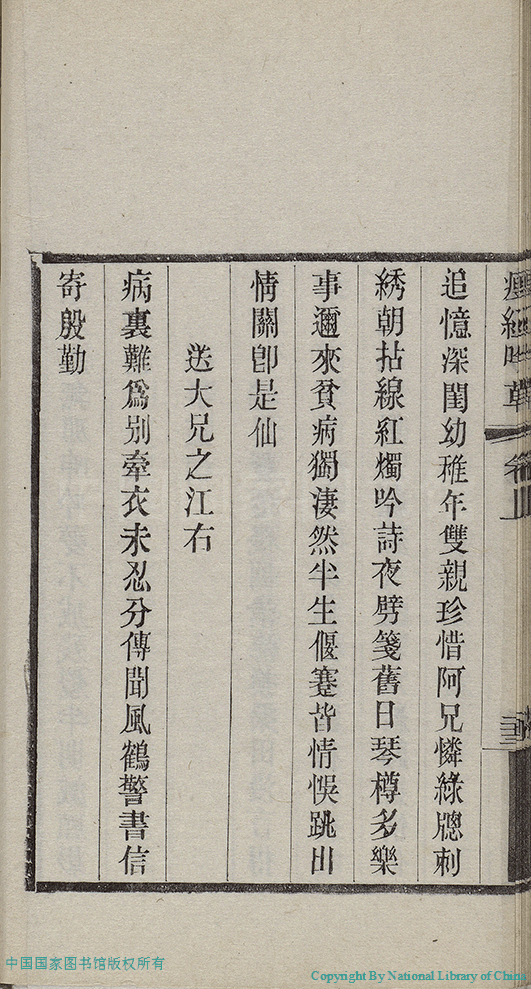 追憶深閨幼稚年雙親珍惜阿兄憐綠牕刺
綉朝拈線紅燭吟詩夜劈箋舊日琴樽多樂
事邇來貧病獨淒然半生偃蹇皆情悞跳出
情關卽是仙
送大兄之江右
病裏難爲別牽衣未忍分傳聞風鶴警書信
寄殷勤
中国国家图书馆版权所有
Copyright By National Library of China